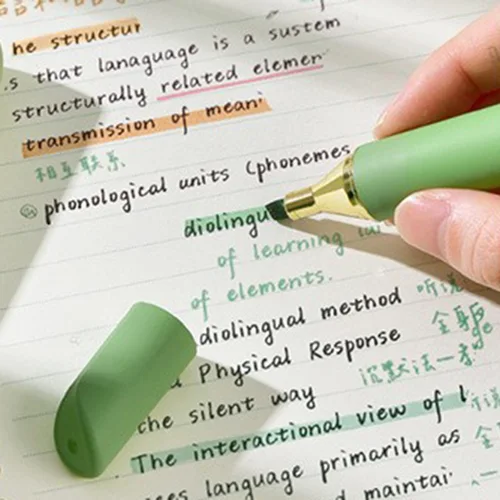 he structur
s that lanaguage is a sustem
structurally related elemen
transmission of meani
相互联系
phonological units (phonemes
diolingu
of learning
of elements.
diolingual method 听说
Physical Response 全身
the silent way 沉默法
The interactional view of l
ees language primarily as
d maintai